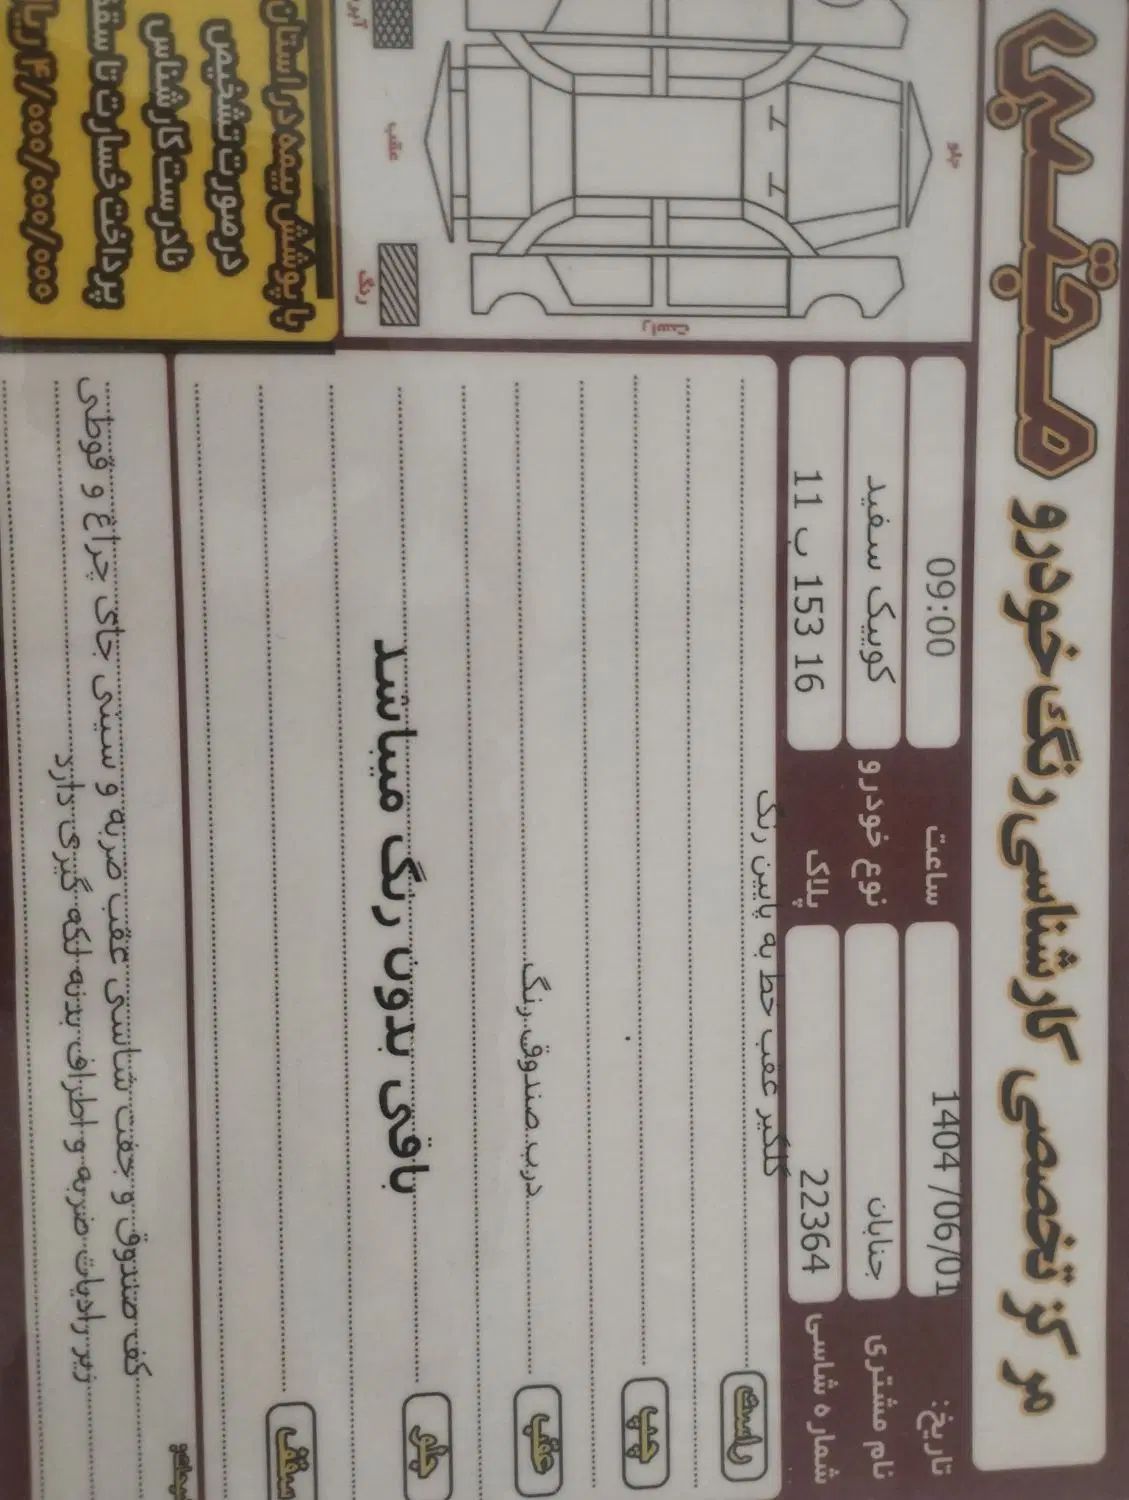 مرکز تخصصی کارشناسی رنگ خودرو مجتبی
تاریخ: 1404 /06/01 ساعت 09:00
نام مشتری جنابان نوع خودرو کوییک سفید
شماره شاسی 22364 پلاک 11 ب 153 16
راست گلگیر عقب خط به پایین رنگ
چپ
عقب درب صندوق رنگ
جلو باقی بدون رنگ میباشد
سقف
کف صندوق و جفت شاسی عقب ضربه و سینی جای چراغ و قوطی
زیر رادیات ضربه و اطراف بدنه لکه گیری دارد
جلو
راست
عقب
رنگ
با پوشش بیمه در استان
در صورت تشخیص
نادرست کارشناس
پرداخت خسارت تا سقف
۴/۰۰۰/۰۰۰/۰۰۰ ریا